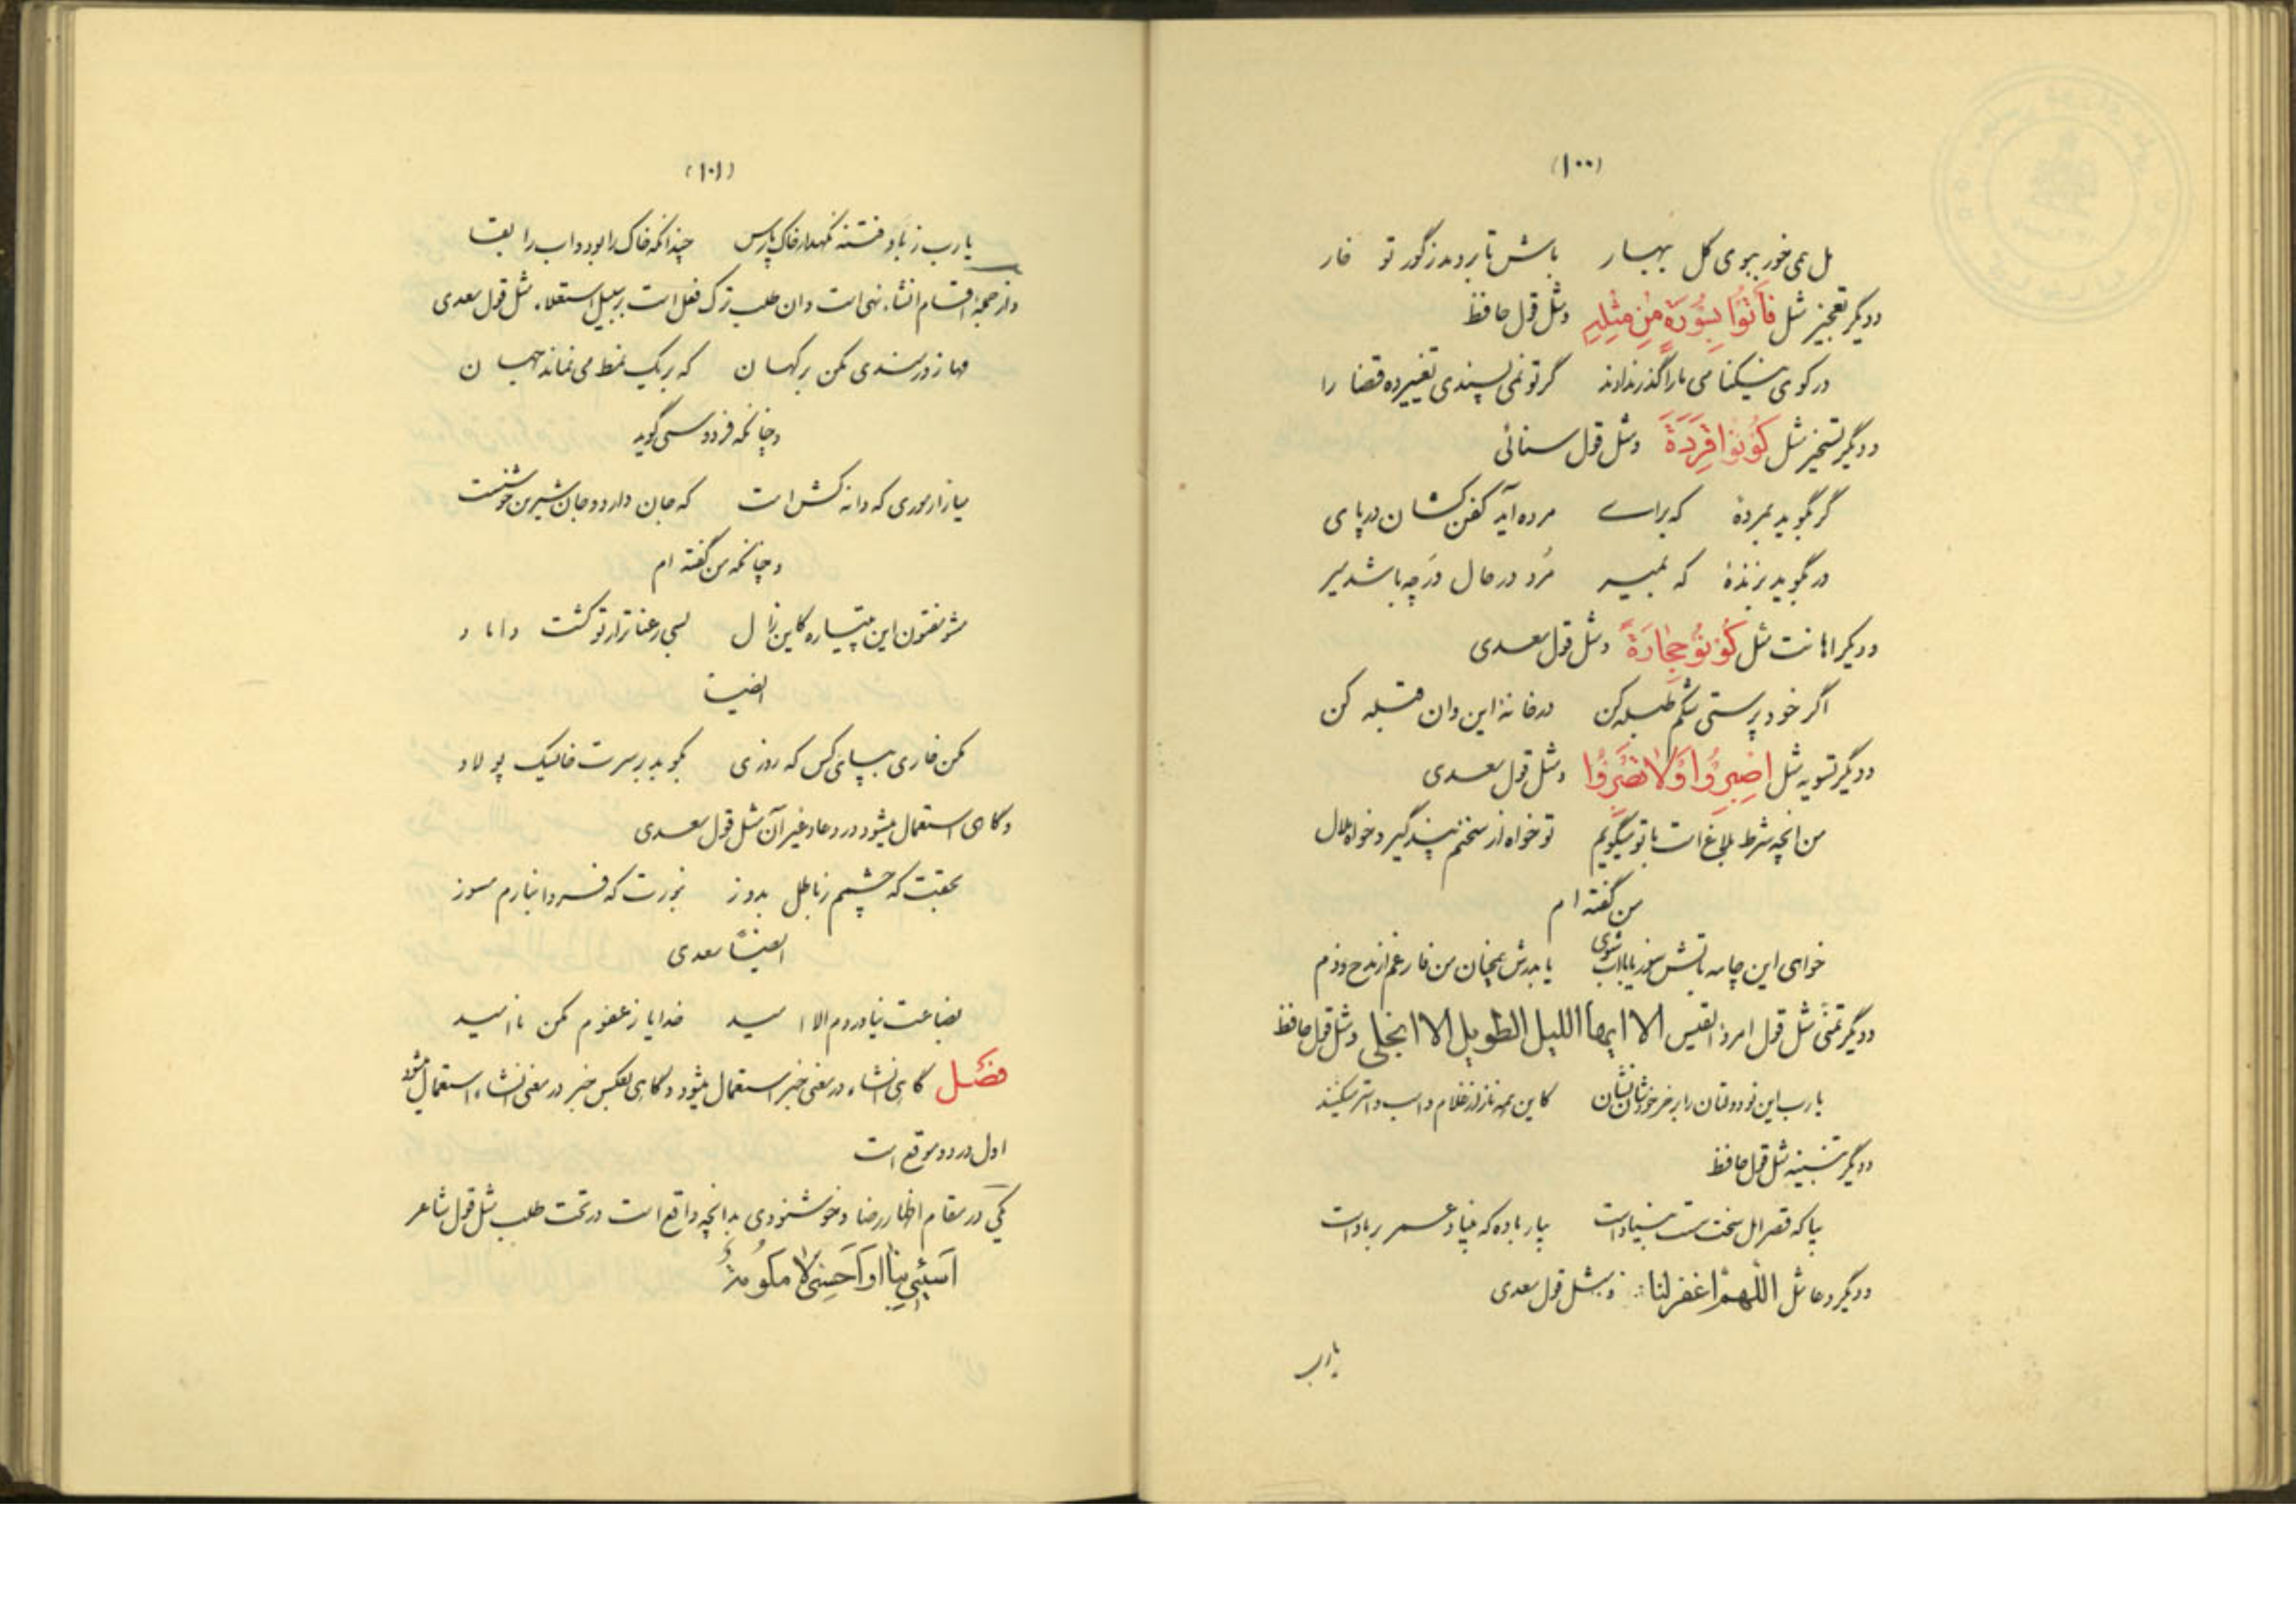 (۱۰۰)
مل می خور ببوی گل بهار باش تا بردمد ز گور تو خار
و دیگر تعجیز مثل فَأتُوا بِسُورَةٍ مِن مِثْلِهِ و مثل قول حافظ
در کوی نیکنامی ما را گذر ندادند گر تو نمی پسندی تغییر ده قضا را
و دیگر تسخیر مثل كُونُوا قِرَدَةً و مثل قول سنائی
گر بگوید بمردهٔ که برای مرده آید کفن کشان در پای
ور بگوید بزندهٔ که بمیر مُرد در حال ورچه باشد میر
و دیگر اهانت مثل كُونُو حِجارَةً و مثل قول سعدی
اگر خود پرستی شکم طبله کن در خانهٔ این و ان قبله کن
و دیگر تسویه مثل اصْبِرُوا اَوْلا تَصْبِرُوا و مثل قول سعدی
من انچه شرط بلاغ است با تو میگویم تو خواه از سخنم پند گیر و خواه ملال
من گفته ام
خواهی این چامه باتش سوز یا باب شوی یا بدرش همچنان من فارغم از مدح و ذم
و دیگر تمنّی مثل قول امرؤ القیس الا ایها اللیل الطویل الا انجلی و مثل قول حافظ
یا رب این نو دولتان را بر خر خودشان نشان کاین همه ناز از غلام و اسب و استر میکنند
و دیگر تنبیه مثل قول حافظ
بیا که قصر امل سخت سست بنیاد است بیار باده که بنیاد عمر بر باد است
و دیگر دعا مثل اللّهمّ اغفرلنا و مثل قول سعدی
یا رب
(۱۰۱)
یا رب ز باد فتنه نگهدار خاک پارس چندانکه خاک را بود و اب را بقا
و از جملهٔ اقسام انشاء نهی است و ان طلب ترک فعل است بر سبیل استعلاء مثل قول سعدی
مها زورمندی مکن بر کهان که بر یک نمط می نماند جهان
و چنانکه فردوسی گوید
میازار موری که دانه کش است که جان دارد و جان شیرین خوشست
و چنانکه من گفته ام
مشو مفتون این پتیاره کاین زال بسی رعنا تر از تو کشت داماد
ایضاً
مکن خاری بپای کس که روزی بکوبد بر سرت خایسک پولاد
و گاهی استعمال میشود در دعا و غیر آن مثل قول سعدی
بحقت که چشمم ز باطل بدوز بنورت که فردا بنارم مسوز
ایضاً سعدی
بضاعت نیاوردم الا امید خدایا ز عفوم مکن نا امید
فصل گاهی انشاء در معنی خبر استعمال میشود و گاهی بعکس خبر در معنی انشاء استعمال میشود
اول در دو موقع است
یکی در مقام اظهار رضا و خوشنودی بدانچه واقع است در تحت طلب مثل قول شاعر
اَسیئي بِنا اَو اَحسِنی لا مَلُومَةٌ